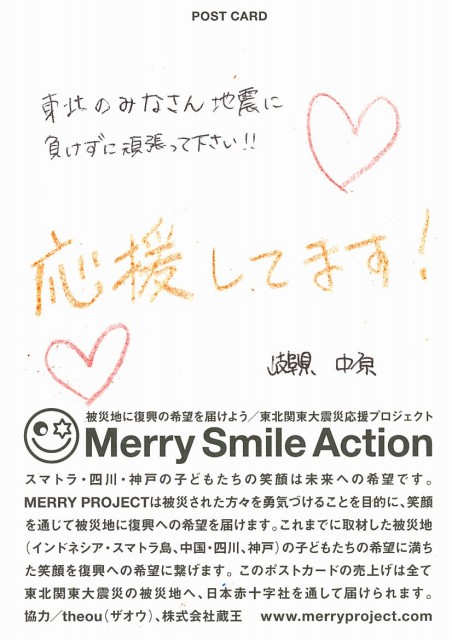 POST CARD
東北のみなさん地震に
負けずに頑張って下さい!!
応援してます!
岐阜県 中原
被災地に復興の希望を届けよう/東北関東大震災応援プロジェクト
Merry Smile Action
スマトラ・四川・神戸の子どもたちの笑顔は未来への希望です。
MERRY PROJECTは被災された方々を勇気づけることを目的に、笑顔
を通じて被災地に復興への希望を届けます。これまでに取材した被災地
(インドネシア・スマトラ島、中国・四川、神戸)の子どもたちの希望に満ち
た笑顔を復興への希望に繋げます。このポストカードの売上げは全て
東北関東大震災の被災地へ、日本赤十字社を通して届けられます。
協力/theou(ザオウ)、株式会社蔵王 www.merryproject.com